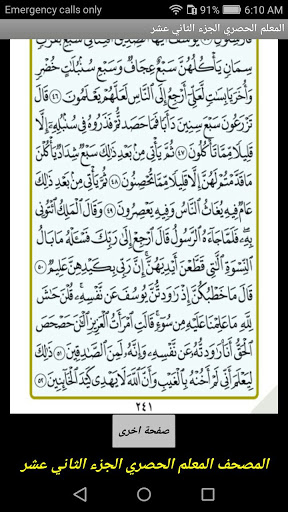 Emergency calls only 6:10 AM
المعلم الحصري الجزء الثاني عشر
سِمَانٍ يَأْكُلُهُنَّ سَبْعٌ عِجَافٌ وَسَبْعِ سُنۢبُلَٰتٍ خُضْرٍ
وَأُخَرَ يَابِسَٰتٍ لَّعَلِّىٓ أَرْجِعُ إِلَى ٱلنَّاسِ لَعَلَّهُمْ يَعْلَمُونَ ٤٦ قَالَ
تَزْرَعُونَ سَبْعَ سِنِينَ دَأَبًا فَمَا حَصَدتُّمْ فَذَرُوهُ فِى سُنۢبُلِهِۦٓ إِلَّا
قَلِيلًا مِّمَّا تَأْكُلُونَ ٤٧ ثُمَّ يَأْتِى مِنۢ بَعْدِ ذَٰلِكَ سَبْعٌ شِدَادٌ يَأْكُلْنَ
مَا قَدَّمْتُمْ لَهُنَّ إِلَّا قَلِيلًا مِّمَّا تُحْصِنُونَ ٤٨ ثُمَّ يَأْتِى مِنۢ بَعْدِ ذَٰلِكَ
عَامٌ فِيهِ يُغَاثُ ٱلنَّاسُ وَفِيهِ يَعْصِرُونَ ٤٩ وَقَالَ ٱلْمَلِكُ ٱئْتُونِى
بِهِۦ ۖ فَلَمَّا جَآءَهُ ٱلرَّسُولُ قَالَ ٱرْجِعْ إِلَىٰ رَبِّكَ فَسْـَٔلْهُ مَا بَالُ
ٱلنِّسْوَةِ ٱلَّٰتِى قَطَّعْنَ أَيْدِيَهُنَّ ۚ إِنَّ رَبِّى بِكَيْدِهِنَّ عَلِيمٌ ٥٠
قَالَ مَا خَطْبُكُنَّ إِذْ رَٰوَدتُّنَّ يُوسُفَ عَن نَّفْسِهِۦ ۚ قُلْنَ حَٰشَ
لِلَّهِ مَا عَلِمْنَا عَلَيْهِ مِن سُوٓءٍ ۚ قَالَتِ ٱمْرَأَتُ ٱلْعَزِيزِ ٱلْـَٰٔنَ حَصْحَصَ
ٱلْحَقُّ أَنَا۠ رَٰوَدتُّهُۥ عَن نَّفْسِهِۦ وَإِنَّهُۥ لَمِنَ ٱلصَّٰدِقِينَ ٥١ ذَٰلِكَ
لِيَعْلَمَ أَنِّى لَمْ أَخُنْهُ بِٱلْغَيْبِ وَأَنَّ ٱللَّهَ لَا يَهْدِى كَيْدَ ٱلْخَآئِنِينَ ٥٢
٢٤١
صفحة اخرى
المصحف المعلم الحصري الجزء الثاني عشر